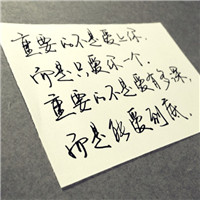 重要的不是爱上你,
而是只爱你一个.
重要的不是爱有多深,
而是能爱到底.